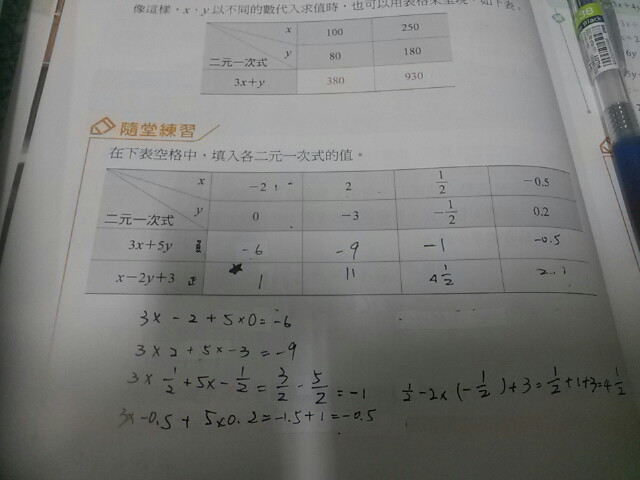 像這樣，x、y以不同的數代入求值時，也可以用表格來呈現，如下表。
x 100 250
y 80 180
二元一次式
3x＋y 380 930
隨堂練習
在下表空格中，填入各二元一次式的值。
x －2 2 1/2 －0.5
y 0 －3 －1/2 0.2
二元一次式
3x＋5y -6 -9 -1 -0.5
x－2y＋3 1 11 4 1/2 2.1
3× -2 + 5×0= -6
3×2+5×-3 = -9
3× 1/2 +5×- 1/2 = 3/2 - 5/2 = -1
1/2 -2×(- 1/2)+3= 1/2 +1+3=4 1/2
3×-0.5 + 5×0.2=-1.5+1=-0.5